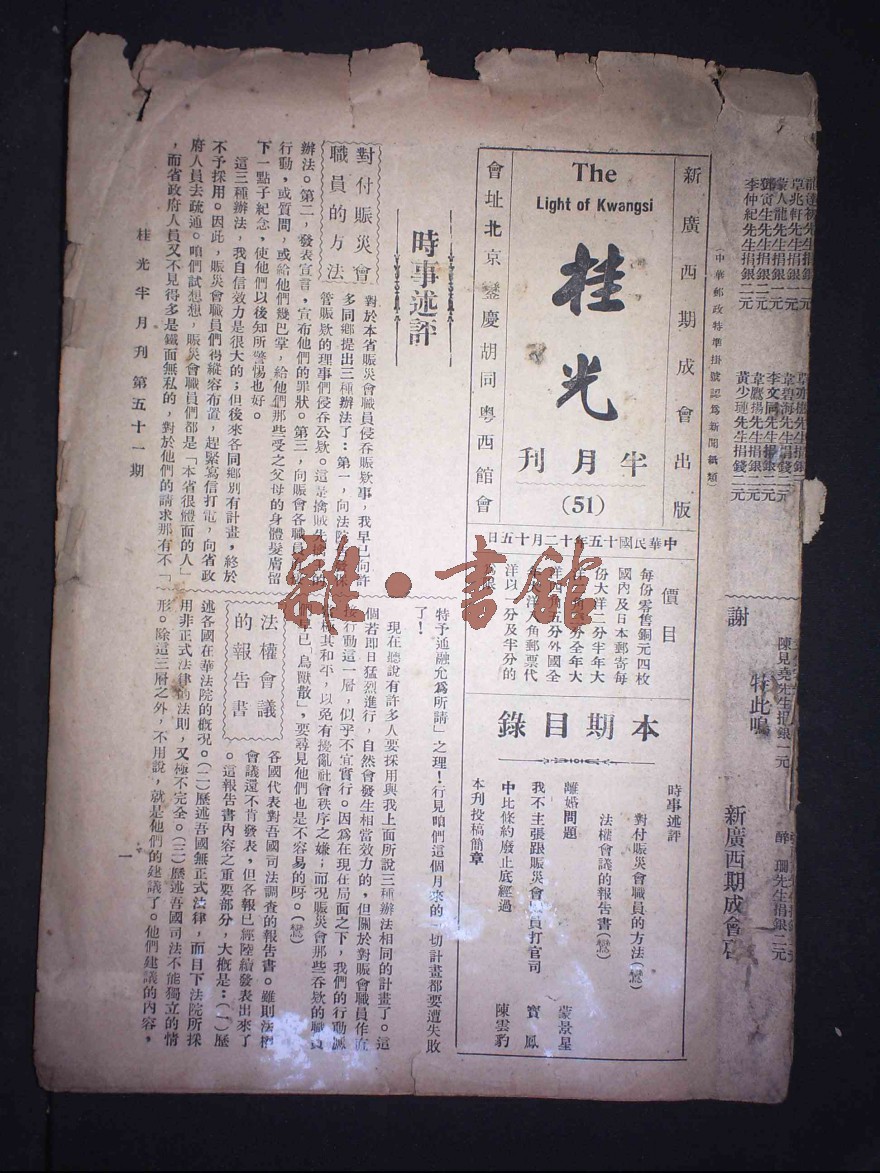 新廣西期成會出版
（中華郵政特準掛號認爲新聞紙類）
The
Light of Kwangsi
桂光
半月刊
(51)
會址北京鑾慶胡同粵西館會
中華民國十五年十二月十五日
價目
每份零售銅元四枚
國內及日本郵寄每
份大洋二分半年大
洋以一分及半分的
本期目錄
時事述評
對付賑災會職員的方法（鸞）
法權會議的報告書（鸞）
離婚問題 蒙景星
我不主張跟賑災會職員打官司 寶鳳
中比條約廢止底經過 陳雲豹
本刊投稿簡章
時事述評
對付賑災會
職員的方法
對於本省賑災會職員侵吞賑欵事，我早已向許
多同鄉提出三種辦法了：第一，向法院
管賑欵的理事們侵吞公欵。這是擒賊先
辦法。第二，發表宣言，宣布他們的罪狀。第三，向賑會各職員
行動，或質問，或給他們幾巴掌，給他們那些受之父母的身體髮膚留
下一點子紀念，使他們以後知所警惕也好。
這三種辦法，我自信效力是很大的；但後來各同鄉別有計畫，終於
不予採用。因此，賑災會職員們得縱容布置，趕緊寫信打電，向省政
府人員去疏通。咱們試想想，賑災會職員們都是「本省很體面的人」
，而省政府人員又不見得多是鐵面無私的，對於他們的請求那有不「
特予通融允爲所請」之理！行見咱們這個月來的一切計畫都要遭失敗
了！
現在聽說有許多人要採用與我上面所說三種辦法相同的計畫了。這
個若即日猛烈進行，自然會發生相當效力的，但關於對賑會職員作直
行動這一層，似乎不宜實行。因爲在現在局面之下，我們的行動
其和平，以免有擾亂社會秩序之嫌；而况賑災會那些吞欵的職員
早已「鳥獸散」，要尋見他們也是不容易的呀。（鸞）
法權會議
的報告書
各國代表對吾國司法調查的報告書。雖則法權
會議還不肯發表，但各報已經陸續發表出來了
。這報告書內容之重要部分，大概是：（一）歷
述各國在華法院的概况。（二）歷述吾國無正式法律，而目下法院所採
用非正式法律的法則，又極不完全。（三）歷述吾國司法不能獨立的情
形。除這三層之外，不用說，就是他們的建議了。他們建議的內容，
桂光半月刊 第五十一期
一
李仲紀先生捐銀二元
黃少璉先生捐錢二元
陳見堯先生捐銀一元
特此鳴
謝
新廣西期成會啓
雜·書館